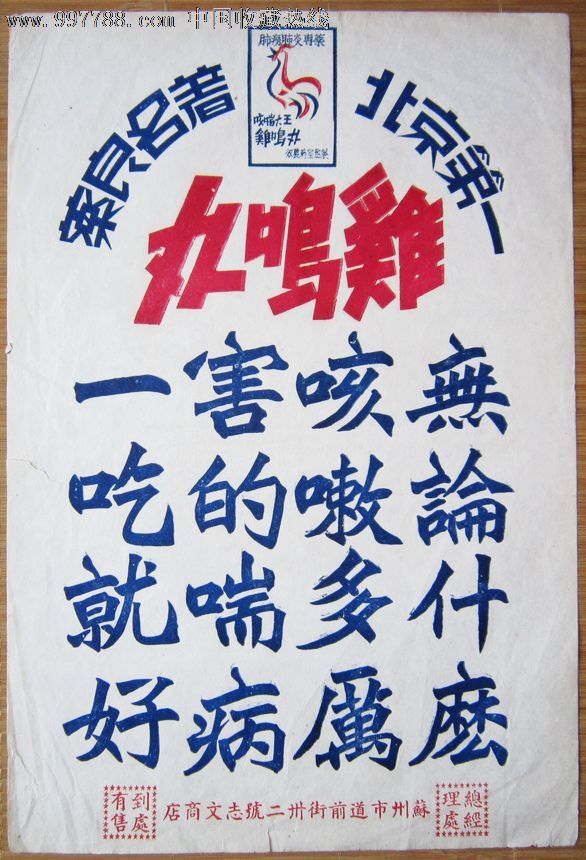 www.997788.com 中国收藏热线
肺癆肺炎專藥
咳喘大王
雞鳴丸
北京第一
著名良藥
雞鳴丸
無論什麼
咳嗽多厲
害的喘病
一吃就好
總經
理處
蘇州市道前街卅二號志文商店
到處
有售